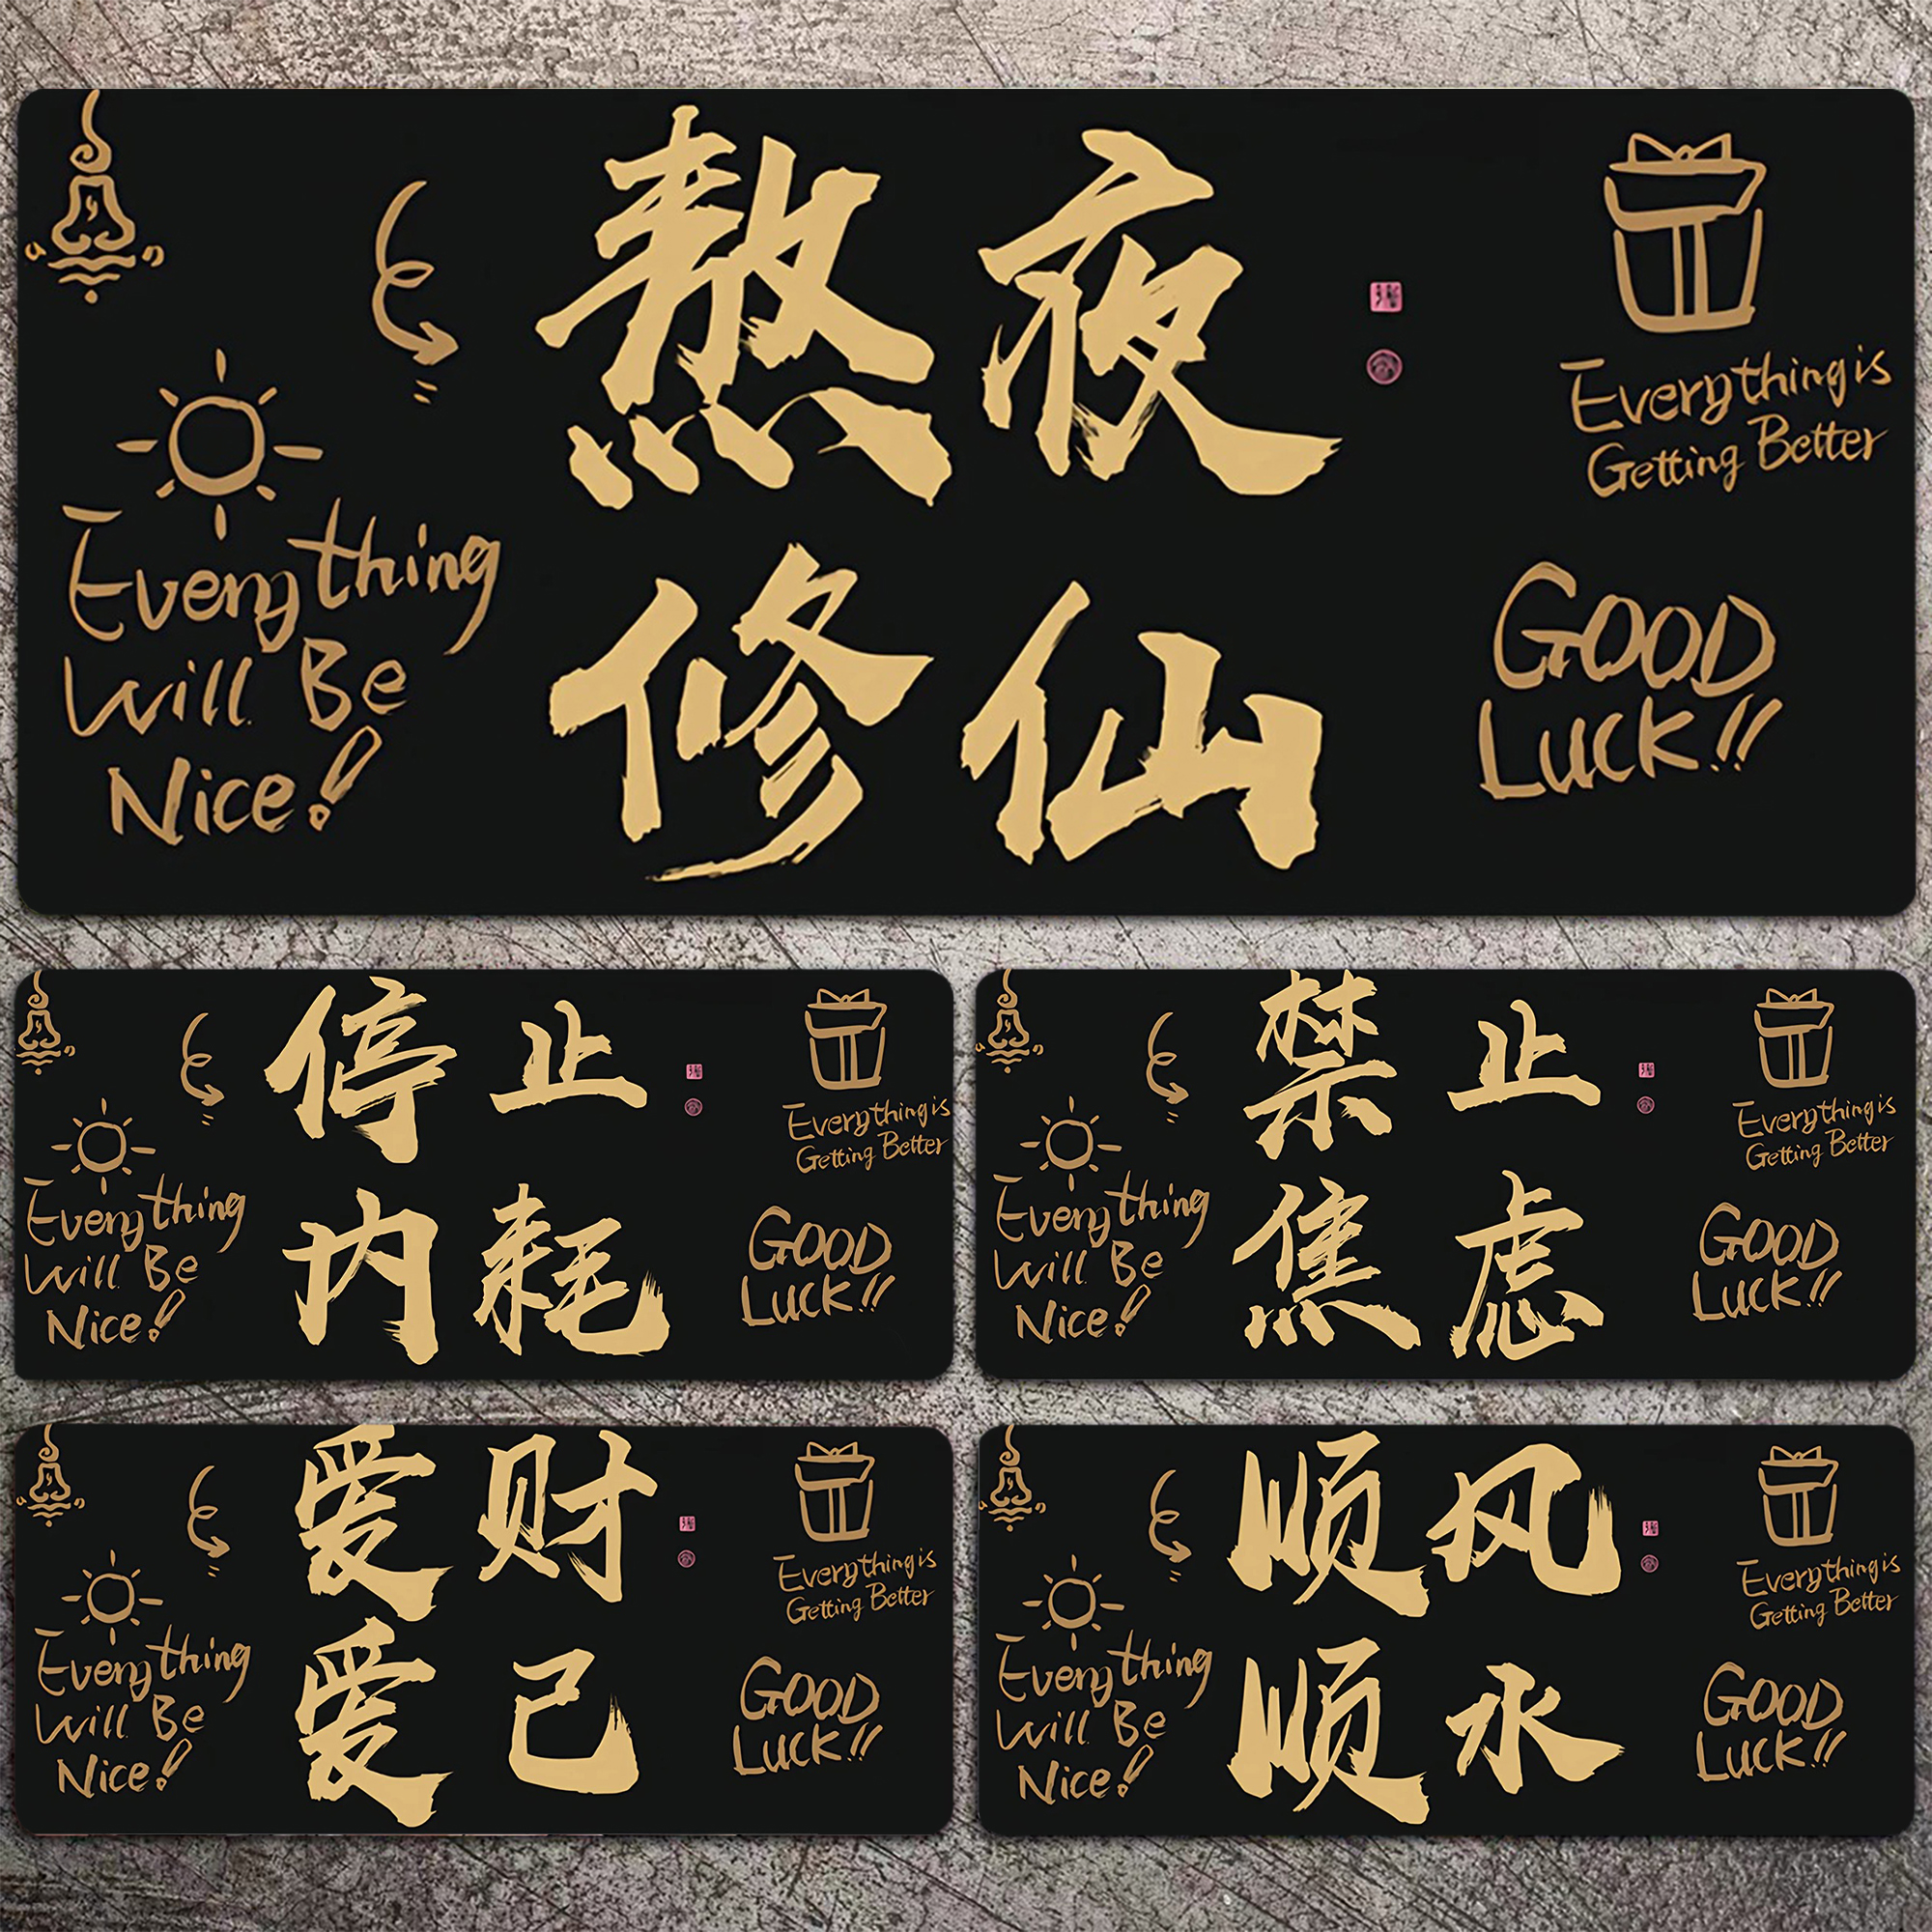 熬夜
修仙
Everything
Will Be
Nice!
Everything is
Getting Better
GOOD
LUCK!!
停止
内耗
Everything
Will Be
Nice!
Everything is
Getting Better
GOOD
LUCK!!
禁止
焦虑
Everything
Will Be
Nice!
Everything is
Getting Better
GOOD
LUCK!!
爱财
爱己
Everything
Will Be
Nice!
Everything is
Getting Better
GOOD
LUCK!!
顺风
顺水
Everything
Will Be
Nice!
Everything is
Getting Better
GOOD
LUCK!!